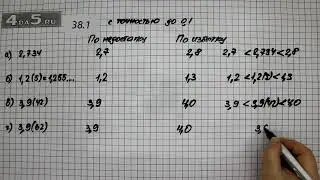 4DA5.RU
38.1 с точностью до 0,1
По недостатку По избытку
а) 2,734 2,7 2,8 2,7 < 2,734 < 2,8
б) 1,2(5)=1,255... 1,2 1,3 1,2 < 1,2(5) < 1,3
в) 3,9(42) 3,9 4,0 3,9 < 3,9(42) < 4,0
г) 3,9(62) 3,9 4,0